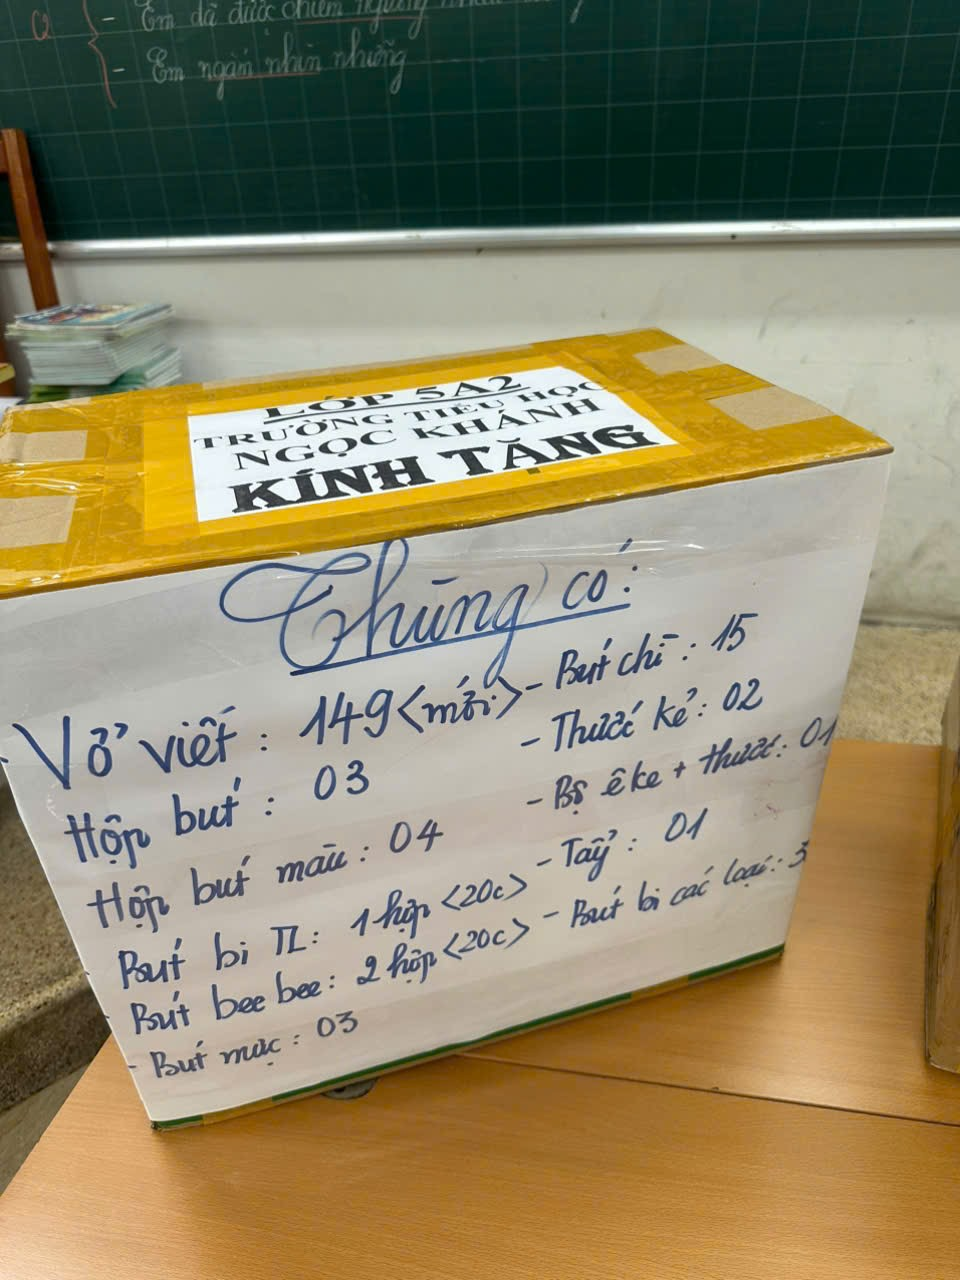 - Em đã được chiêm ngưỡng
- Em ngắm nhìn những
LỚP 5A2
TRƯỜNG TIỂU HỌC
NGỌC KHÁNH
KÍNH TẶNG
Thùng có:
- Vở viết : 149 <mới>
Hộp bút : 03
Hộp bút màu : 04
- Bút bi TL: 1 hộp <20c>
- Bút bee bee: 2 hộp <20c>
- Bút mực : 03
- Bút chì : 15
- Thước kẻ : 02
- Bộ êke + thước: 01
- Tẩy : 01
- Bút bi các loại: 3